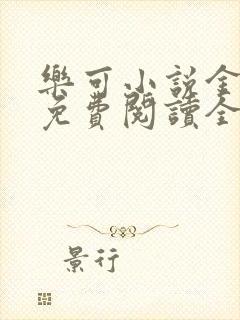 樂可小說全
免費閱讀全
景行